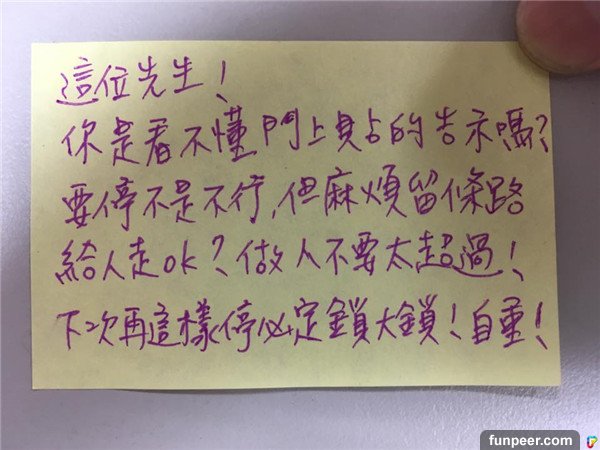 這位先生！
你是看不懂門上貼的告示嗎？
要停不是不行，但麻煩留條路
給人走ok？做人不要太超過！
下次再這樣停必定鎖大鎖！自重！
funpeer.com